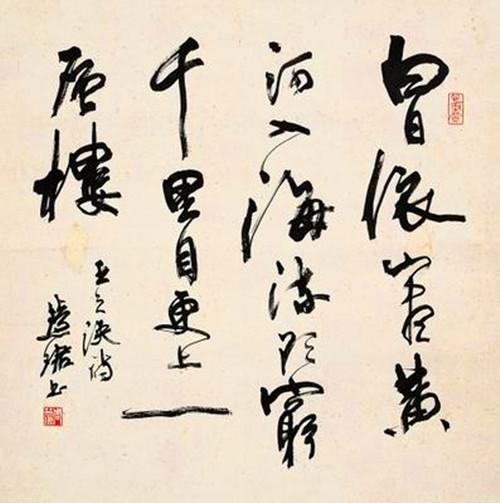 白日依山盡黄
河入海流欲窮
千里目更上一
层樓
王之涣诗
书